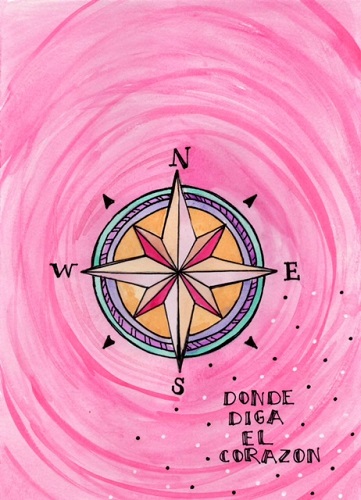 N
W E
S
DONDE
DIGA
EL
CORAZON